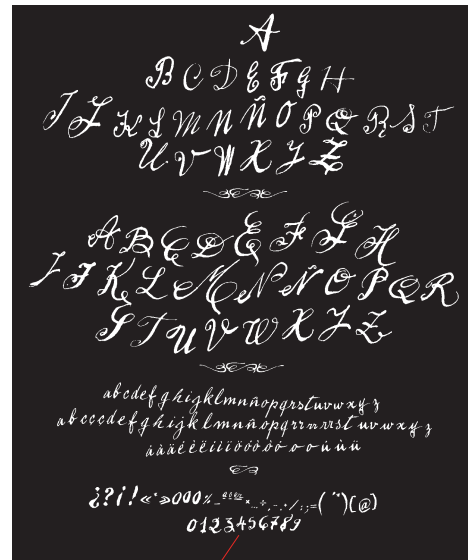 A
B C D E F G H
I J K L M N Ñ O P Q R S T
U V W X Y Z
A B C D E F G H
I J K L M N Ñ O P Q R
S T U V W X Y Z
abcdefghijklmnñopqrstuvwxyz
abcccdefghijklmnñopqrrnrrst uvwxyz
0123456789